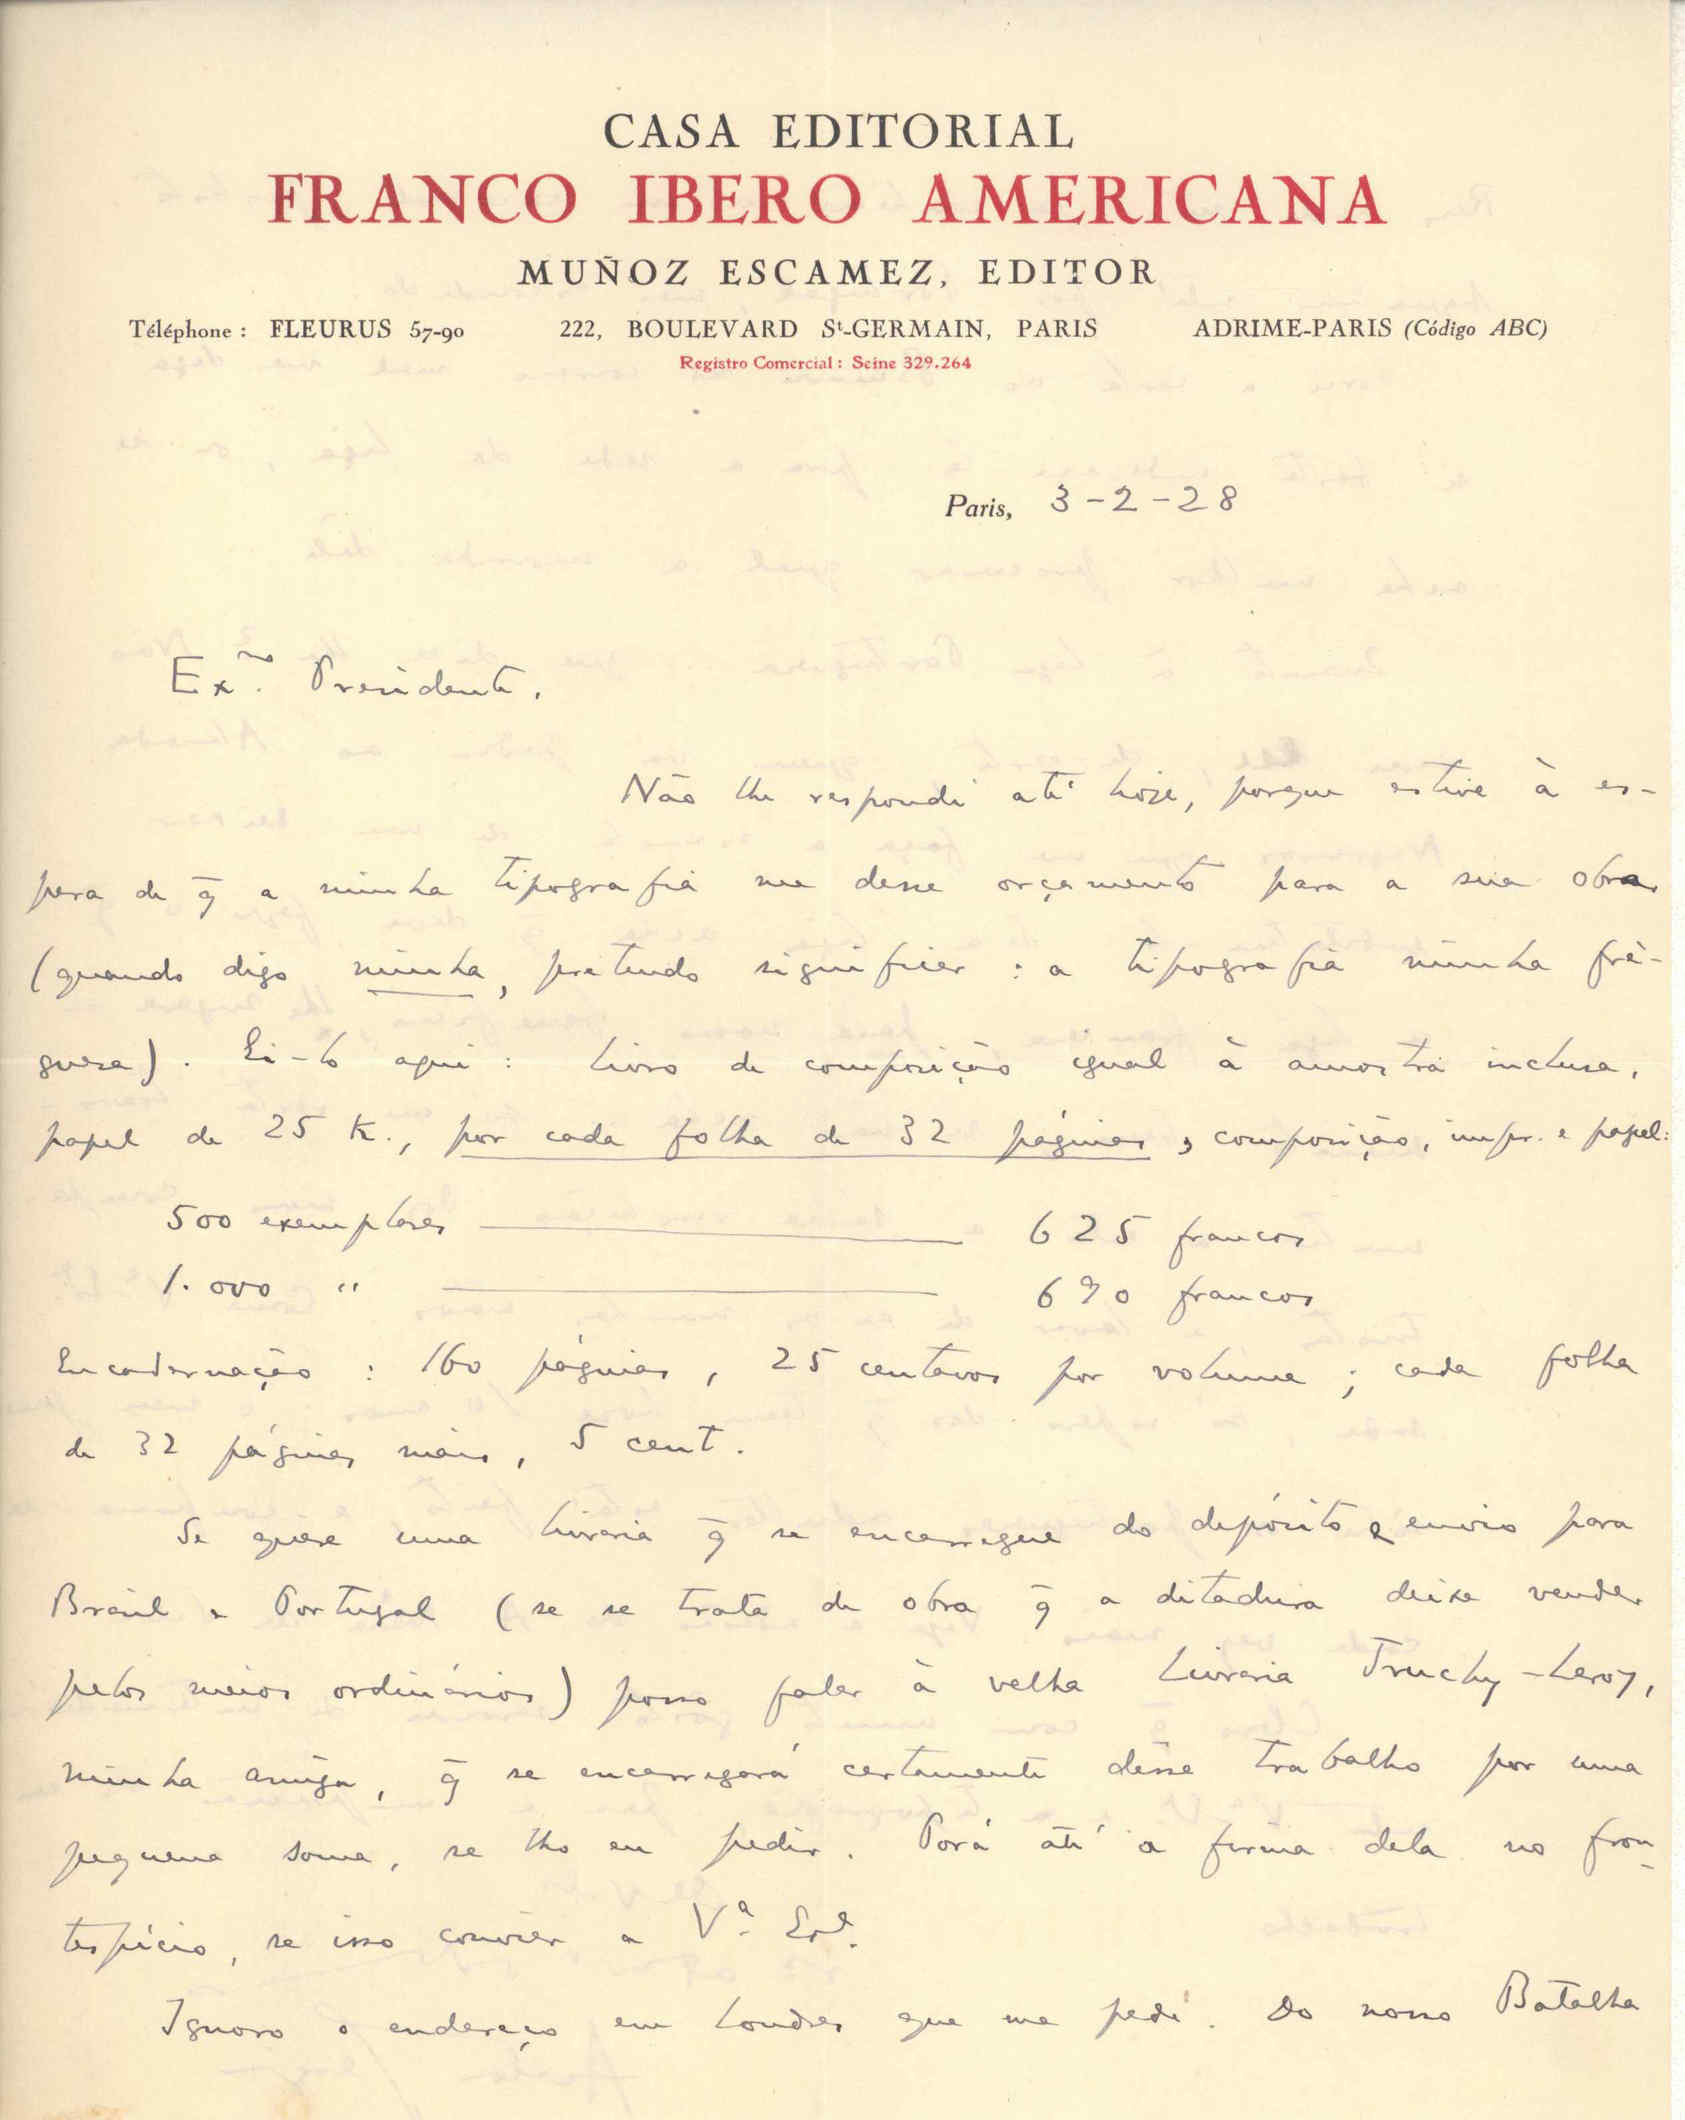 CASA EDITORIAL
FRANCO IBERO AMERICANA
MUÑOZ ESCAMEZ, EDITOR
Téléphone : FLEURUS 57-90 222, BOULEVARD St-GERMAIN, PARIS ADRIME-PARIS (Código ABC)
Registro Comercial : Seine 329.264
Paris, 3-2-28
Ex.mo Presidente.
Não lhe respondi até hoje, porque estive à es-
pera de q̄ a minha tipografia me desse orçamento para a sua obra
(quando digo minha, pretendo significar : a tipografia minha fré-
guesa). Ei-lo aqui : Livro de composição igual à amostra inclusa,
papel de 25 k., por cada folha de 32 páginas, composição, impr. e papel:
500 exemplares 625 francos
1.000 " 690 francos
Encadernação : 160 páginas, 25 centavos por volume ; cada folha
de 32 páginas mais, 5 cent.
Se quere uma livraria q̄ se encarregue do depósito e envio para
Brasil e Portugal (se se trata de obra q̄ a ditadura deixe vender
pelos meios ordinários) posso falar à velha Livraria Truchy-Leroy,
minha amiga, q̄ se encarregará certamente dêsse trabalho por uma
pequena soma, se lho eu pedir. Porá até a firma dela no fron-
tespício, se isso convier a V.ª Ex.ª
Ignoro o endereço em Londres que me pede. Do nosso Batalha